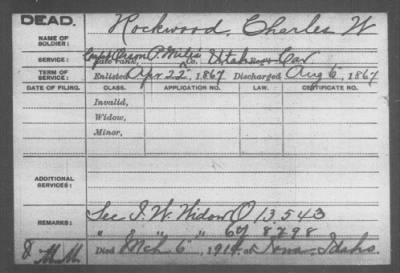 DEAD.
NAME OF SOLDIER: Rockwood, Charles W
SERVICE: Capt Orson P. Miles Co. Utah Cav
Late rank,
TERM OF SERVICE: Enlisted Apr 22", 1867 Discharged Aug 6, 1867
DATE OF FILING. CLASS. APPLICATION NO. LAW. CERTIFICATE NO.
Invalid,
Widow,
Minor,
ADDITIONAL SERVICES:
REMARKS: See I. W. Widow O 13,543
" " " " 8798
Died Mch 6", 1914, at Iona, Idaho.